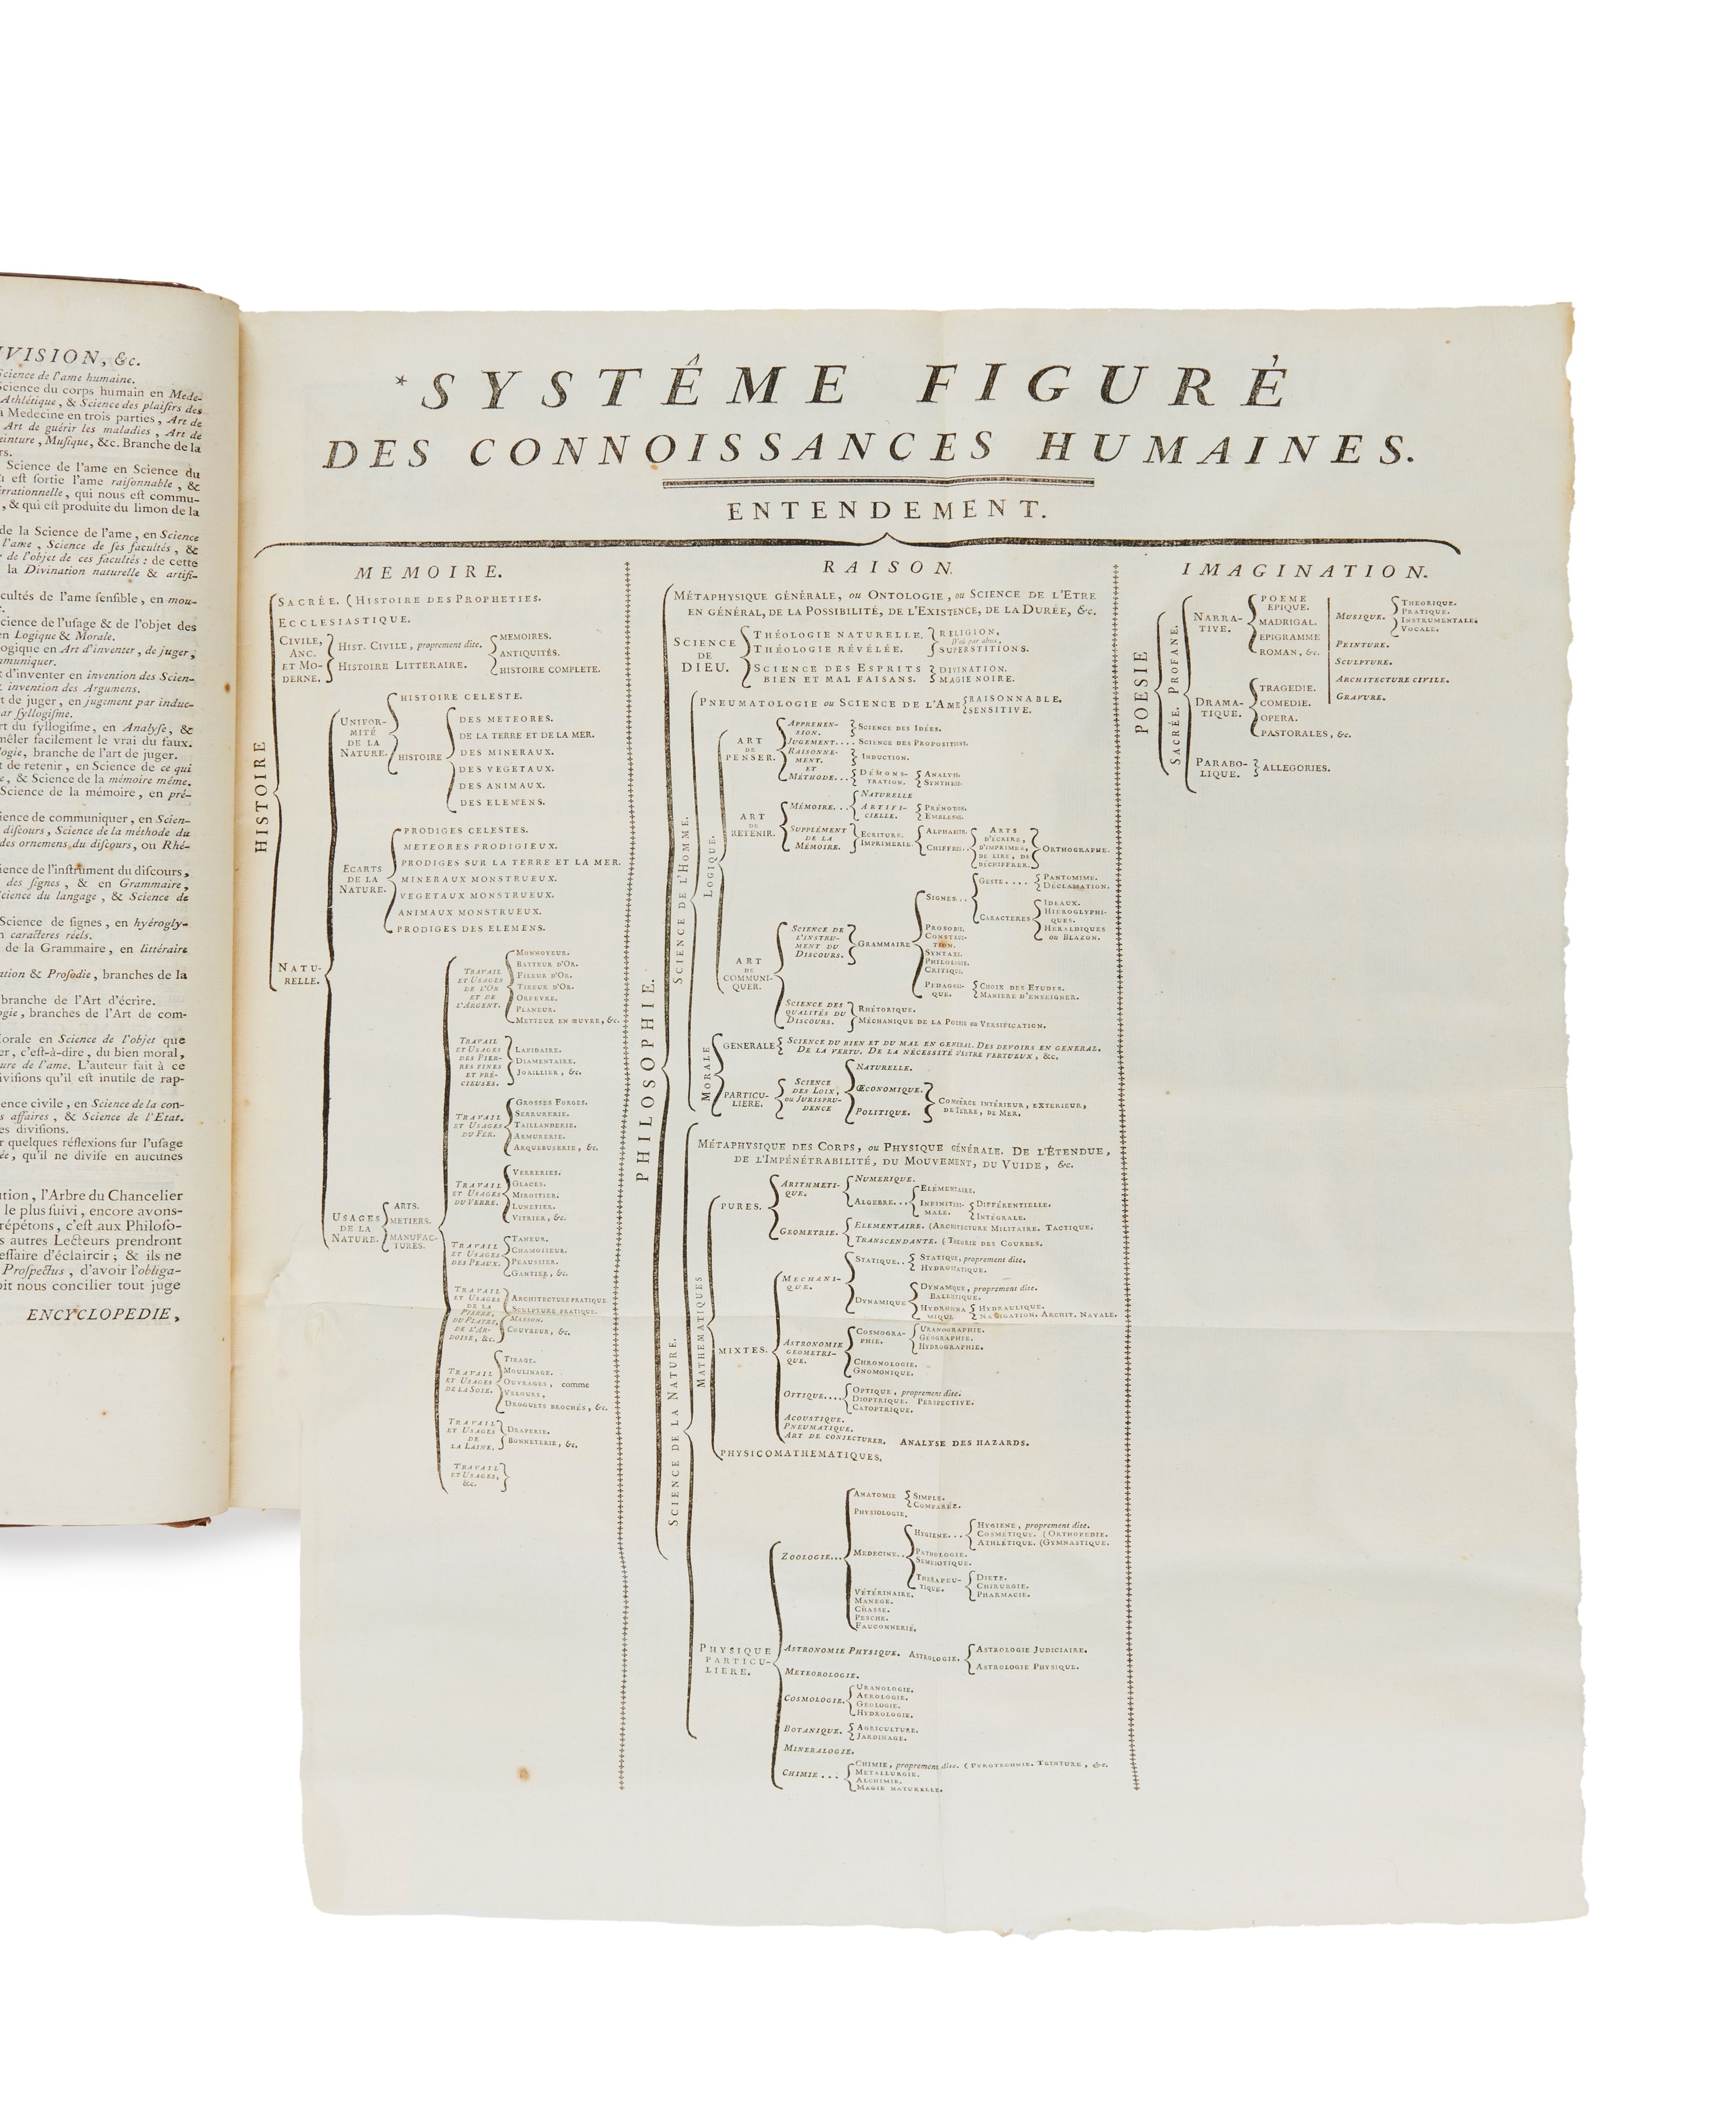 IVISION, &c.
Science de l'ame humaine.
Science du corps humain en Mede-
Athlétique, & Science des plaisirs des
a Medecine en trois parties, Art de
Art de guérir les maladies, Art de
einture, Musique, &c. Branche de la
rs.
Science de l'ame en Science du
i est sortie l'ame raisonnable, &
irrationnelle, qui nous est commu-
, & qui est produite du limon de la
de la Science de l'ame, en Science
l'ame, Science de ses facultés, &
de l'objet de ces facultés : de cette
la Divination naturelle & artifi-
cultés de l'ame sensible, en mou-
cience de l'usage & de l'objet des
en Logique & Morale.
ogique en Art d'inventer, de juger,
mmuniquer.
t d'inventer en invention des Scien-
& invention des Argumens.
rt de juger, en jugement par induc-
par syllogisme.
rt du syllogisme, en Analyse, &
mêler facilement le vrai du faux.
logie, branche de l'art de juger.
t de retenir, en Science de ce qui
e, & Science de la mémoire même.
Science de la mémoire, en pré-
ience de communiquer, en Scien-
discours, Science de la méthode du
des ornemens du discours, ou Rhé-
ience de l'instrument du discours,
des signes, & en Grammaire,
cience du langage, & Science de
Science de signes, en hyérogly-
n caracteres réels.
de la Grammaire, en littéraire
ation & Prosodie, branches de la
branche de l'Art d'écrire.
ogie, branches de l'Art de com-
Morale en Science de l'objet que
er, c'est-à-dire, du bien moral,
ure de l'ame. L'auteur fait à ce
ivisions qu'il est inutile de rap-
ence civile, en Science de la con-
s affaires, & Science de l'Etat.
es divisions.
r quelques réflexions sur l'usage
ée, qu'il ne divise en aucunes
ution, l'Arbre du Chancelier
le plus suivi, encore avons-
répétons, c'est aux Philoso-
s autres Lecteurs prendront
essaire d'éclaircir ; & ils ne
Prospectus, d'avoir l'obliga-
oit nous concilier tout juge
ENCYCLOPEDIE,
*SYSTÊME FIGURÉ
DES CONNOISSANCES HUMAINES.
ENTENDEMENT.
MEMOIRE.
HISTOIRE
SACRÉE. (HISTOIRE DES PROPHETIES.
ECCLESIASTIQUE.
CIVILE,
ANC.
ET MO-
DERNE.
HIST. CIVILE, proprement dite.
MEMOIRES.
ANTIQUITÉS.
HISTOIRE COMPLETE.
HISTOIRE LITTERAIRE.
NATU-
RELLE.
UNIFOR-
MITÉ
DE LA
NATURE.
HISTOIRE CELESTE.
HISTOIRE
DES METEORES.
DE LA TERRE ET DE LA MER.
DES MINERAUX.
DES VEGETAUX.
DES ANIMAUX.
DES ELEMENS.
ECARTS
DE LA
NATURE.
PRODIGES CELESTES.
METEORES PRODIGIEUX.
PRODIGES SUR LA TERRE ET LA MER.
MINERAUX MONSTRUEUX.
VEGETAUX MONSTRUEUX.
ANIMAUX MONSTRUEUX.
PRODIGES DES ELEMENS.
USAGES
DE LA
NATURE.
ARTS.
METIERS.
MANUFAC-
TURES.
TRAVAIL
ET USAGES
DE L'OR
ET DE
L'ARGENT.
MONNOYEUR.
BATTEUR D'OR.
FILEUR D'OR.
TIREUR D'OR.
ORFEVRE.
PLANEUR.
METTEUR EN ŒUVRE, &c.
TRAVAIL
ET USAGES
DES PIER-
RES FINES
ET PRÉ-
CIEUSES.
LAPIDAIRE.
DIAMENTAIRE.
JOAILLIER, &c.
TRAVAIL
ET USAGES
DU FER.
GROSSES FORGES.
SERRURERIE.
TAILLANDERIE.
ARMURERIE.
ARQUEBUSERIE, &c.
TRAVAIL
ET USAGES
DU VERRE.
VERRERIES.
GLACES.
MIROITIER.
LUNETIER.
VITRIER, &c.
TRAVAIL
ET USAGES
DES PEAUX.
TANEUR.
CHAMOISEUR.
PEAUSSIER.
GANTIER, &c.
TRAVAIL
ET USAGES
DE LA
PIERRE,
DU PLATRE,
DE L'AR-
DOISE, &c.
ARCHITECTURE PRATIQUE.
SCULPTURE PRATIQUE.
MASSON.
COUVREUR, &c.
TRAVAIL
ET USAGES
DE LA SOIE.
TIRAGE.
MOULINAGE.
OUVRAGES, comme
VELOURS,
DROGUETS BROCHÉS, &c.
TRAVAIL
ET USAGES
DE
LA LAINE.
DRAPERIE.
BONNETERIE, &c.
TRAVAIL
ET USAGES,
&c.
RAISON.
PHILOSOPHIE.
MÉTAPHYSIQUE GÉNÉRALE, ou ONTOLOGIE, ou SCIENCE DE L'ETRE
EN GÉNÉRAL, DE LA POSSIBILITÉ, DE L'EXISTENCE, DE LA DURÉE, &c.
SCIENCE
DE
DIEU.
THÉOLOGIE NATURELLE.
THÉOLOGIE RÉVÉLÉE.
RELIGION,
D'où par abus,
SUPERSTITIONS.
SCIENCE DES ESPRITS
BIEN ET MAL FAISANS.
DIVINATION.
MAGIE NOIRE.
SCIENCE DE L'HOMME.
PNEUMATOLOGIE ou SCIENCE DE L'AME
RAISONNABLE.
SENSITIVE.
LOGIQUE.
ART
DE
PENSER.
APPREHEN-
SION.
SCIENCE DES IDÉES.
JUGEMENT.... SCIENCE DES PROPOSITIONS.
RAISONNE-
MENT.
ET
INDUCTION.
MÉTHODE...
DÉMONS-
TRATION.
ANALYSE.
SYNTHESE.
ART
DE
RETENIR.
MÉMOIRE...
NATURELLE
ARTIFI-
CIELLE.
PRÉNOTION.
EMBLEME.
SUPPLÉMENT
DE LA
MÉMOIRE.
ECRITURE.
IMPRIMERIE.
ALPHABET.
CHIFFRE..
ARTS
D'ÉCRIRE,
D'IMPRIMER,
DE LIRE, DE
DÉCHIFFRER.
ORTHOGRAPHE.
ART
DE
COMMUNI-
QUER.
SCIENCE DE
L'INSTRU-
MENT DU
DISCOURS.
GRAMMAIRE
SIGNES...
GESTE....
PANTOMIME.
DECLAMATION.
CARACTERES
IDEAUX.
HIEROGLYPHI-
QUES.
HERALDIQUES
ou BLAZON.
PROSODIE.
CONSTRUC-
TION.
SYNTAXE.
PHILOLOGIE.
CRITIQUE.
PEDAGOGI-
QUE.
CHOIX DES ETUDES.
MANIERE D'ENSEIGNER.
SCIENCE DES
QUALITÉS DU
DISCOURS.
RHÉTORIQUE.
MÉCHANIQUE DE LA POESIE ou VERSIFICATION.
MORALE
GENERALE
SCIENCE DU BIEN ET DU MAL EN GENERAL. DES DEVOIRS EN GENERAL.
DE LA VERTU. DE LA NÉCESSITÉ D'ETRE VERTUEUX, &c.
PARTICU-
LIERE.
SCIENCE
DES LOIX,
OU JURISPRU-
DENCE
NATURELLE.
ŒCONOMIQUE.
POLITIQUE.
COMMERCE INTÉRIEUR, EXTERIEUR,
DE TERRE, DE MER.
SCIENCE DE LA NATURE.
MÉTAPHYSIQUE DES CORPS, ou PHYSIQUE GÉNÉRALE. DE L'ÉTENDUE,
DE L'IMPÉNÉTRABILITÉ, DU MOUVEMENT, DU VUIDE, &c.
MATHEMATIQUES
PURES.
ARITHMETI-
QUE.
NUMERIQUE.
ALGEBRE...
ELÉMENTAIRE.
INFINITESI-
MALE.
DIFFÉRENTIELLE.
INTÉGRALE.
GEOMETRIE.
ELEMENTAIRE. (ARCHITECTURE MILITAIRE. TACTIQUE.
TRANSCENDANTE. (THEORIE DES COURBES.
MIXTES.
MECHANI-
QUE.
STATIQUE..
STATIQUE, proprement dite.
HYDROSTATIQUE.
DYNAMIQUE
DYNAMIQUE, proprement dite.
BALLISTIQUE.
HYDRODINA
MIQUE
HYDRAULIQUE.
NAVIGATION. ARCHIT. NAVALE.
ASTRONOMIE
GEOMETRI-
QUE.
COSMOGRA-
PHIE.
URANOGRAPHIE.
GÉOGRAPHIE.
HYDROGRAPHIE.
CHRONOLOGIE.
GNOMONIQUE.
OPTIQUE....
OPTIQUE, proprement dite.
DIOPTRIQUE. PERSPECTIVE.
CATOPTRIQUE.
ACOUSTIQUE.
PNEUMATIQUE.
ART DE CONJECTURER. ANALYSE DES HAZARDS.
PHYSICOMATHEMATIQUES.
PHYSIQUE
PARTICU-
LIERE.
ZOOLOGIE...
ANATOMIE
SIMPLE.
COMPARÉE.
PHYSIOLOGIE.
MEDECINE..
HYGIENE...
HYGIENE, proprement dite.
COSMÉTIQUE. (ORTHOPEDIE.
ATHLÉTIQUE. (GYMNASTIQUE.
PATHOLOGIE.
SEMEIOTIQUE.
THERAPEU-
TIQUE.
DIETE.
CHIRURGIE.
PHARMACIE.
VÉTÉRINAIRE.
MANEGE.
CHASSE.
PESCHE.
FAUCONNERIE.
ASTRONOMIE PHYSIQUE. ASTROLOGIE.
ASTROLOGIE JUDICIAIRE.
ASTROLOGIE PHYSIQUE.
METEOROLOGIE.
COSMOLOGIE.
URANOLOGIE.
AEROLOGIE.
GEOLOGIE.
HYDROLOGIE.
BOTANIQUE.
AGRICULTURE.
JARDINAGE.
MINERALOGIE.
CHIMIE...
CHIMIE, proprement dite. (PYROTECHNIE. TEINTURE, &c.
METALLURGIE.
ALCHIMIE.
MAGIE NATURELLE.
IMAGINATION.
POESIE
SACRÉE. PROFANE.
NARRA-
TIVE.
POEME
EPIQUE.
MADRIGAL.
EPIGRAMME
ROMAN, &c.
DRAMA-
TIQUE.
TRAGEDIE.
COMEDIE.
OPERA.
PASTORALES, &c.
PARABO-
LIQUE.
ALLEGORIES.
MUSIQUE.
THEORIQUE.
PRATIQUE.
INSTRUMENTALE.
VOCALE.
PEINTURE.
SCULPTURE.
ARCHITECTURE CIVILE.
GRAVURE.